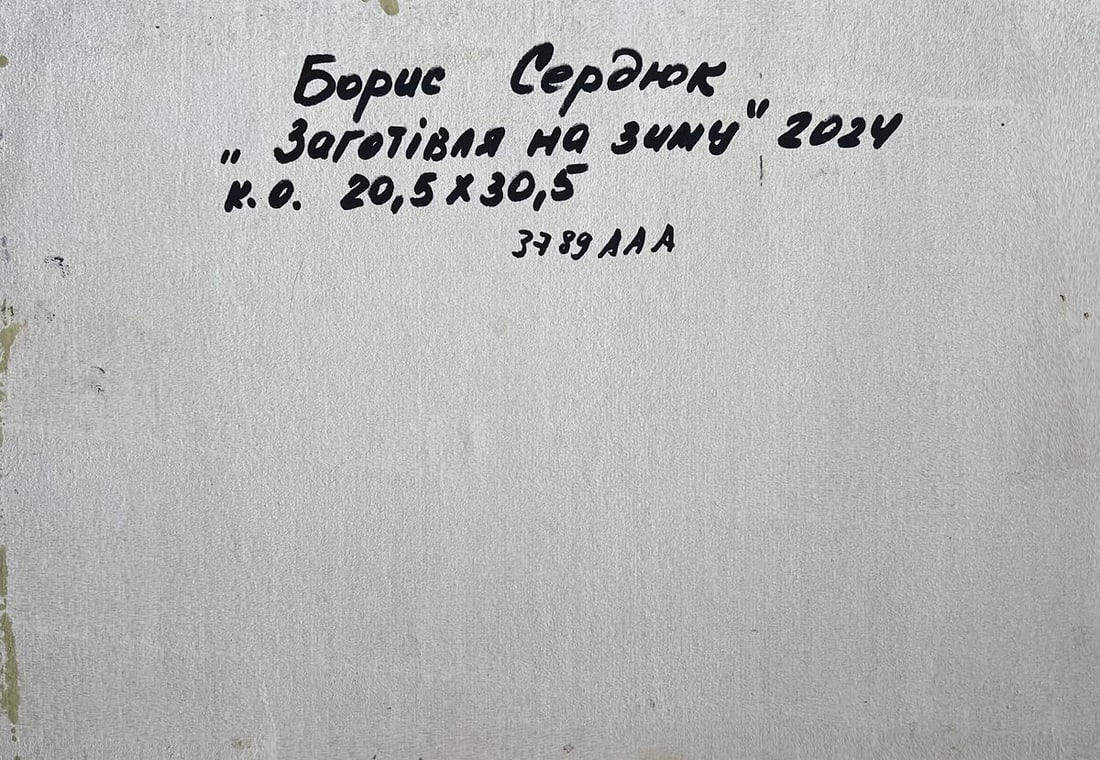 Борис Сердюк
„Заготівля на зиму" 2024
к.о. 20,5 х 30,5
3789ААА